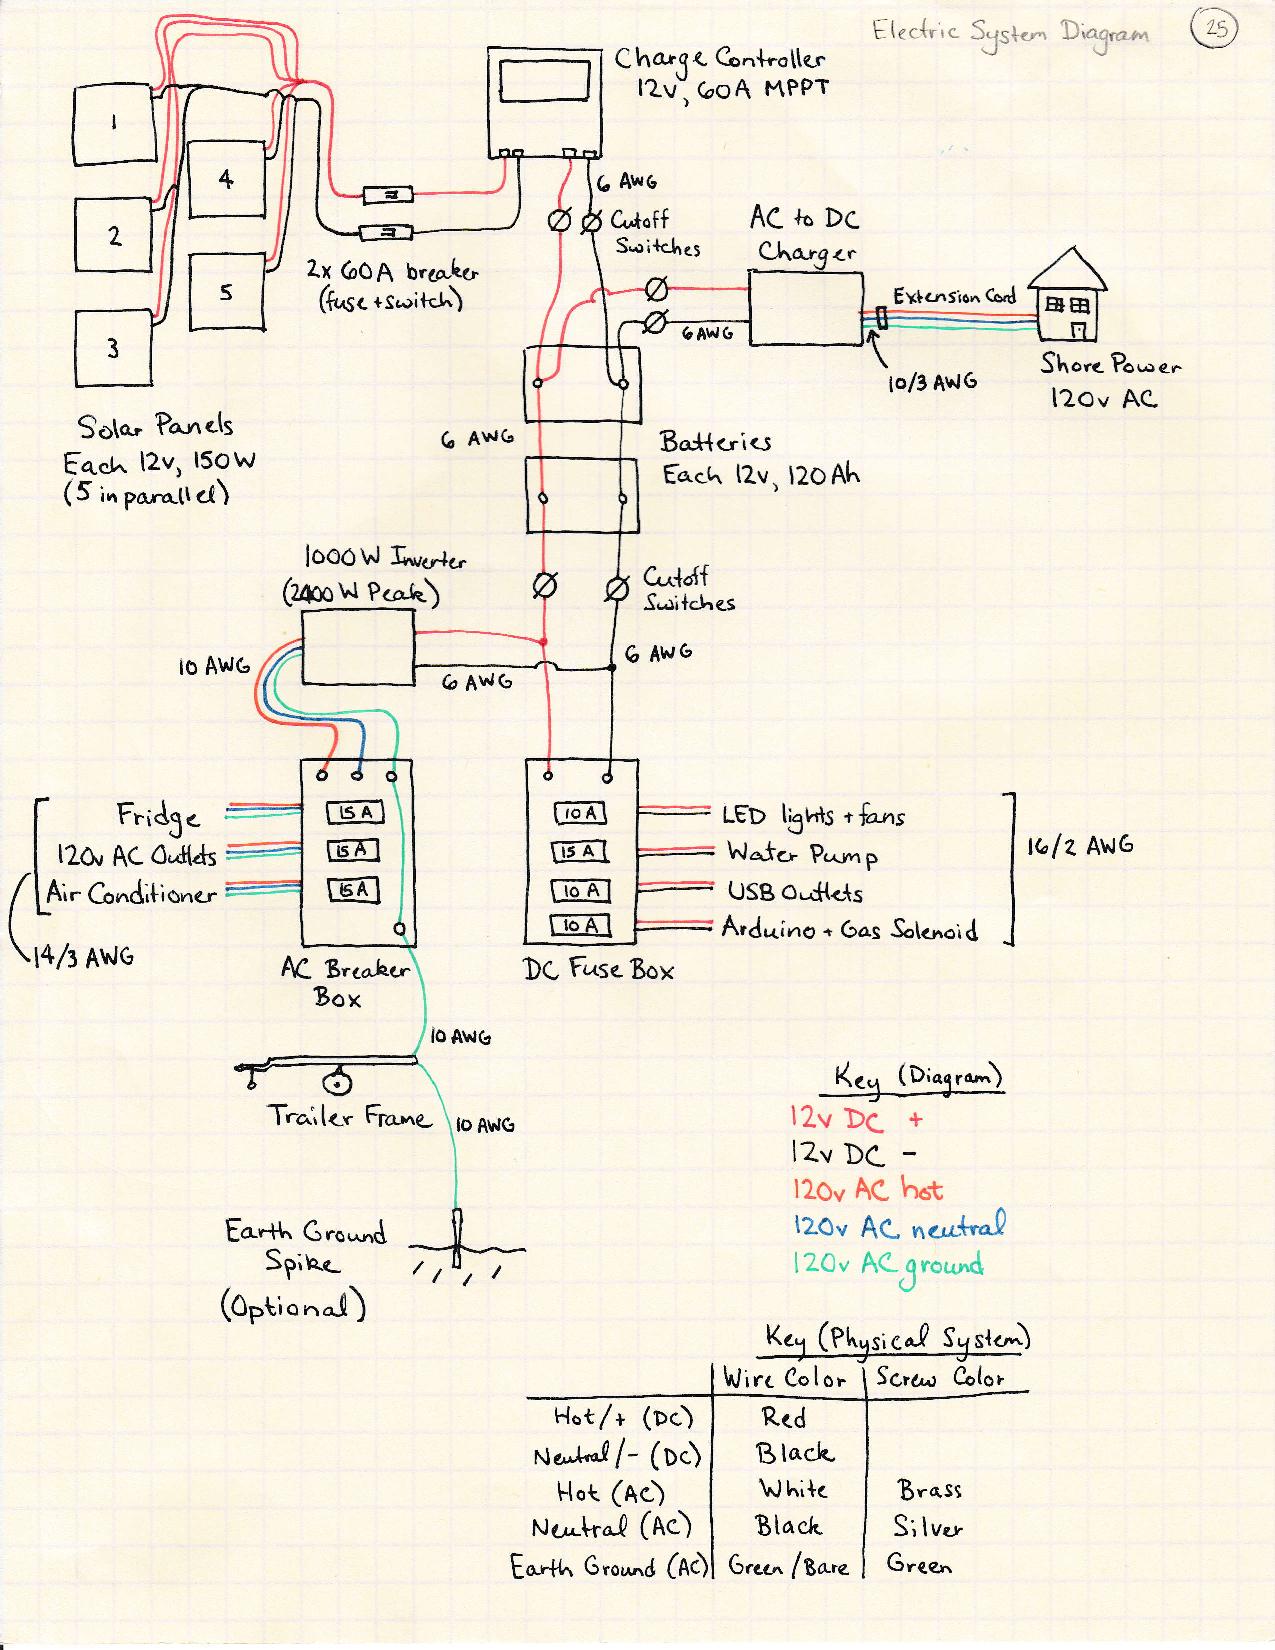 Electric System Diagram
25
Charge Controller
12v, 60A MPPT
1
4
2
5
3
6 AWG
Cutoff
Switches
AC to DC
Charger
2x 60A breaker
(fuse + switch)
Extension Cord
6 AWG
10/3 AWG
Shore Power
120v AC
Solar Panels
Each 12v, 150W
(5 in parallel)
6 AWG
Batteries
Each 12v, 120Ah
1000W Inverter
(2400W Peak)
Cutoff
Switches
10 AWG
6 AWG
6 AWG
Fridge
120v AC Outlets
Air Conditioner
14/3 AWG
15A
15A
15A
AC Breaker
Box
10A
15A
10A
10A
DC Fuse Box
LED lights + fans
Water Pump
USB Outlets
Arduino + Gas Solenoid
16/2 AWG
10 AWG
Trailer Frame
10 AWG
Earth Ground
Spike
(Optional)
Key (Diagram)
12v DC +
12v DC -
120v AC hot
120v AC neutral
120v AC ground
Key (Physical System)
Wire Color Screw Color
Hot/+ (DC) Red
Neutral/- (DC) Black
Hot (AC) White Brass
Neutral (AC) Black Silver
Earth Ground (AC) Green/Bare Green